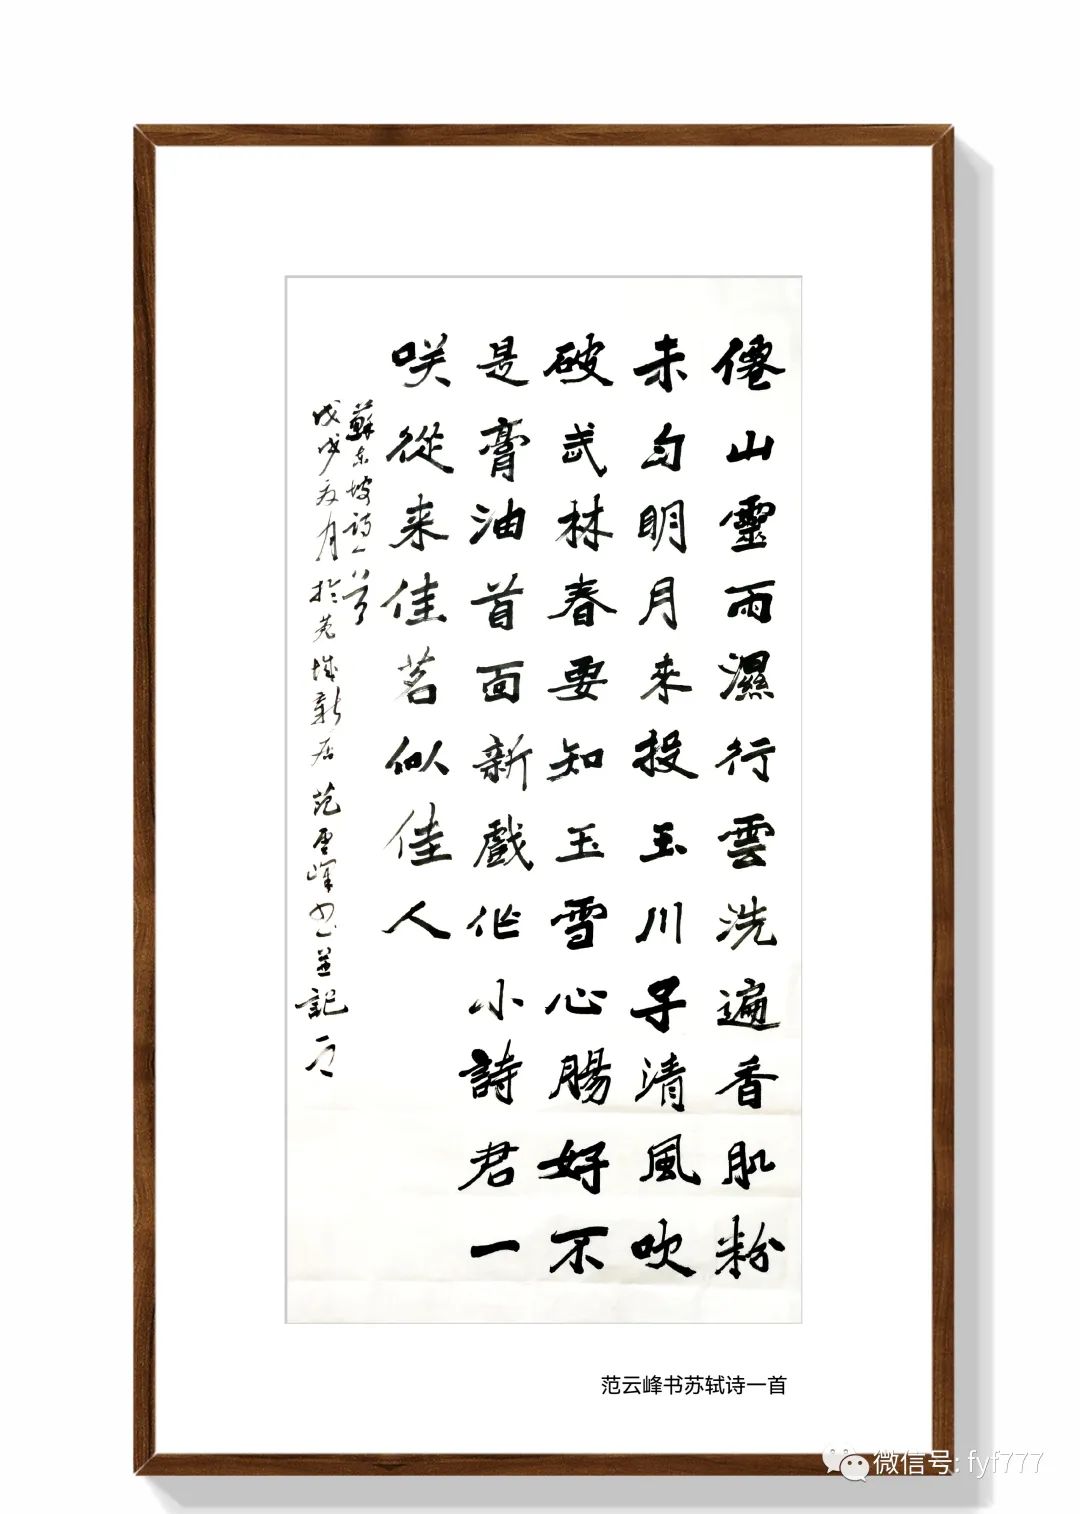 僊山靈雨濕行雲洗遍香肌粉
未匀明月来投玉川子清風吹
破武林春要知玉雪心腸好不
是膏油首面新戲作小詩君一
咲從来佳茗似佳人
蘇东坡詩一首
戊戌夏月於芜城新居范雲峰书並記
范云峰书苏轼诗一首
微信号: fyf777